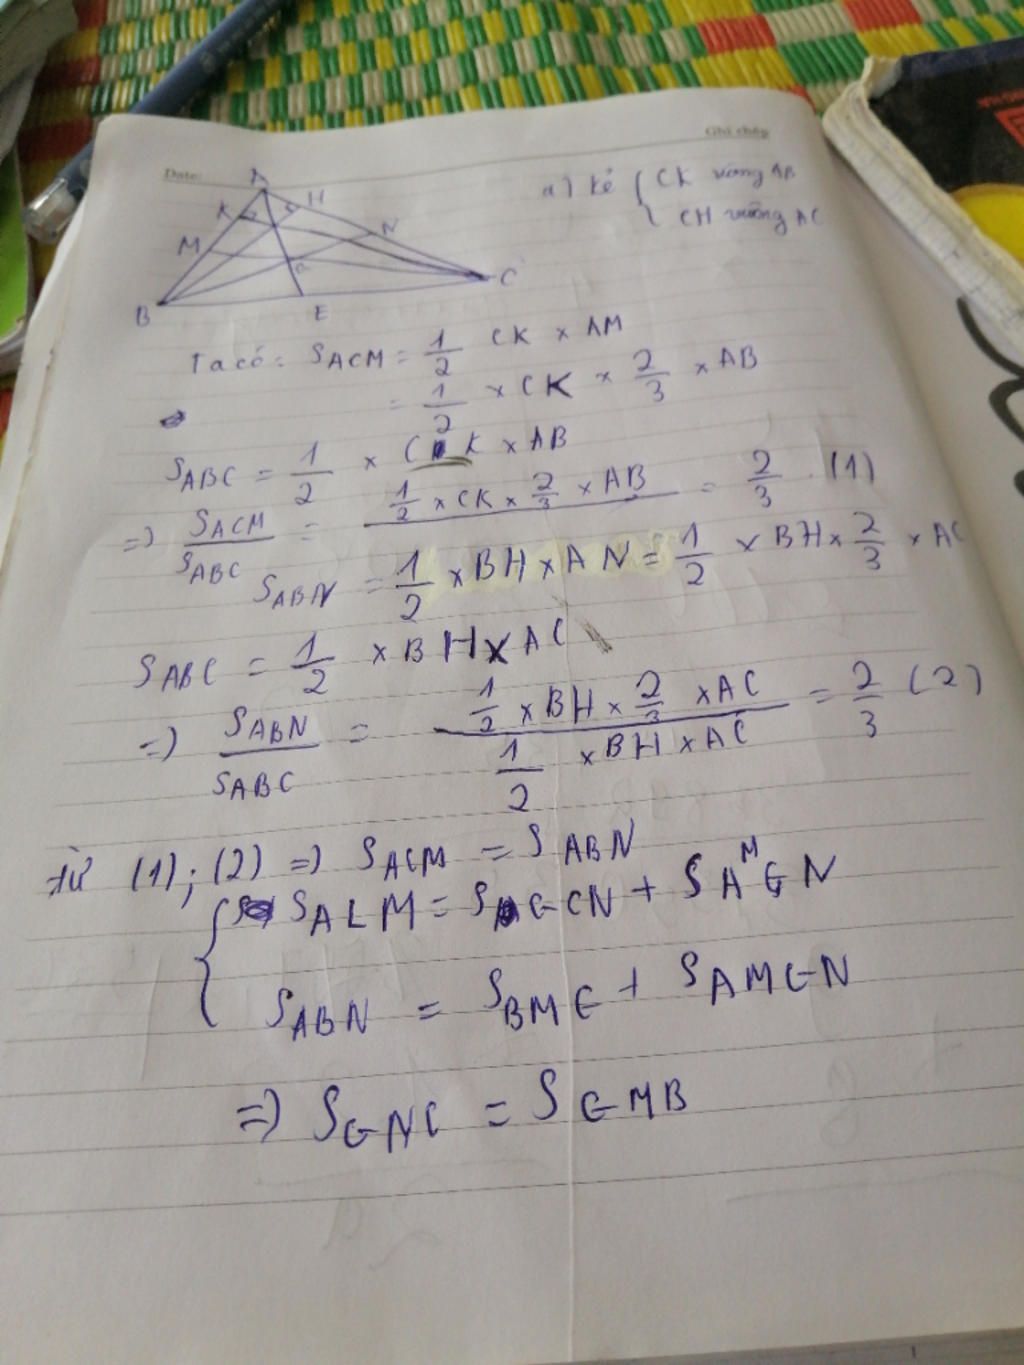 Ghi chép
Date:
A
K H
M N
G
B E C
a) kẻ { CK vuông AB
{ CH vuông AC
Ta có: SACM = 1/2 CK × AM
= 1/2 × CK × 2/3 × AB
SABC = 1/2 × CK × AB
=> SACM/SABC = 1/2 × CK × 2/3 × AB = 2/3 (1)
SABN = 1/2 × BH × AN = 1/2 × BH × 2/3 × AC
SABC = 1/2 × BH × AC
=> SABN/SABC = (1/2 × BH × 2/3 × AC)/(1/2 × BH × AC) = 2/3 (2)
Từ (1); (2) => SACM = SABN
{ SACM = SGCN + SAMGN
SABN = SBMG + SAMGN
=> SGNC = SGMB